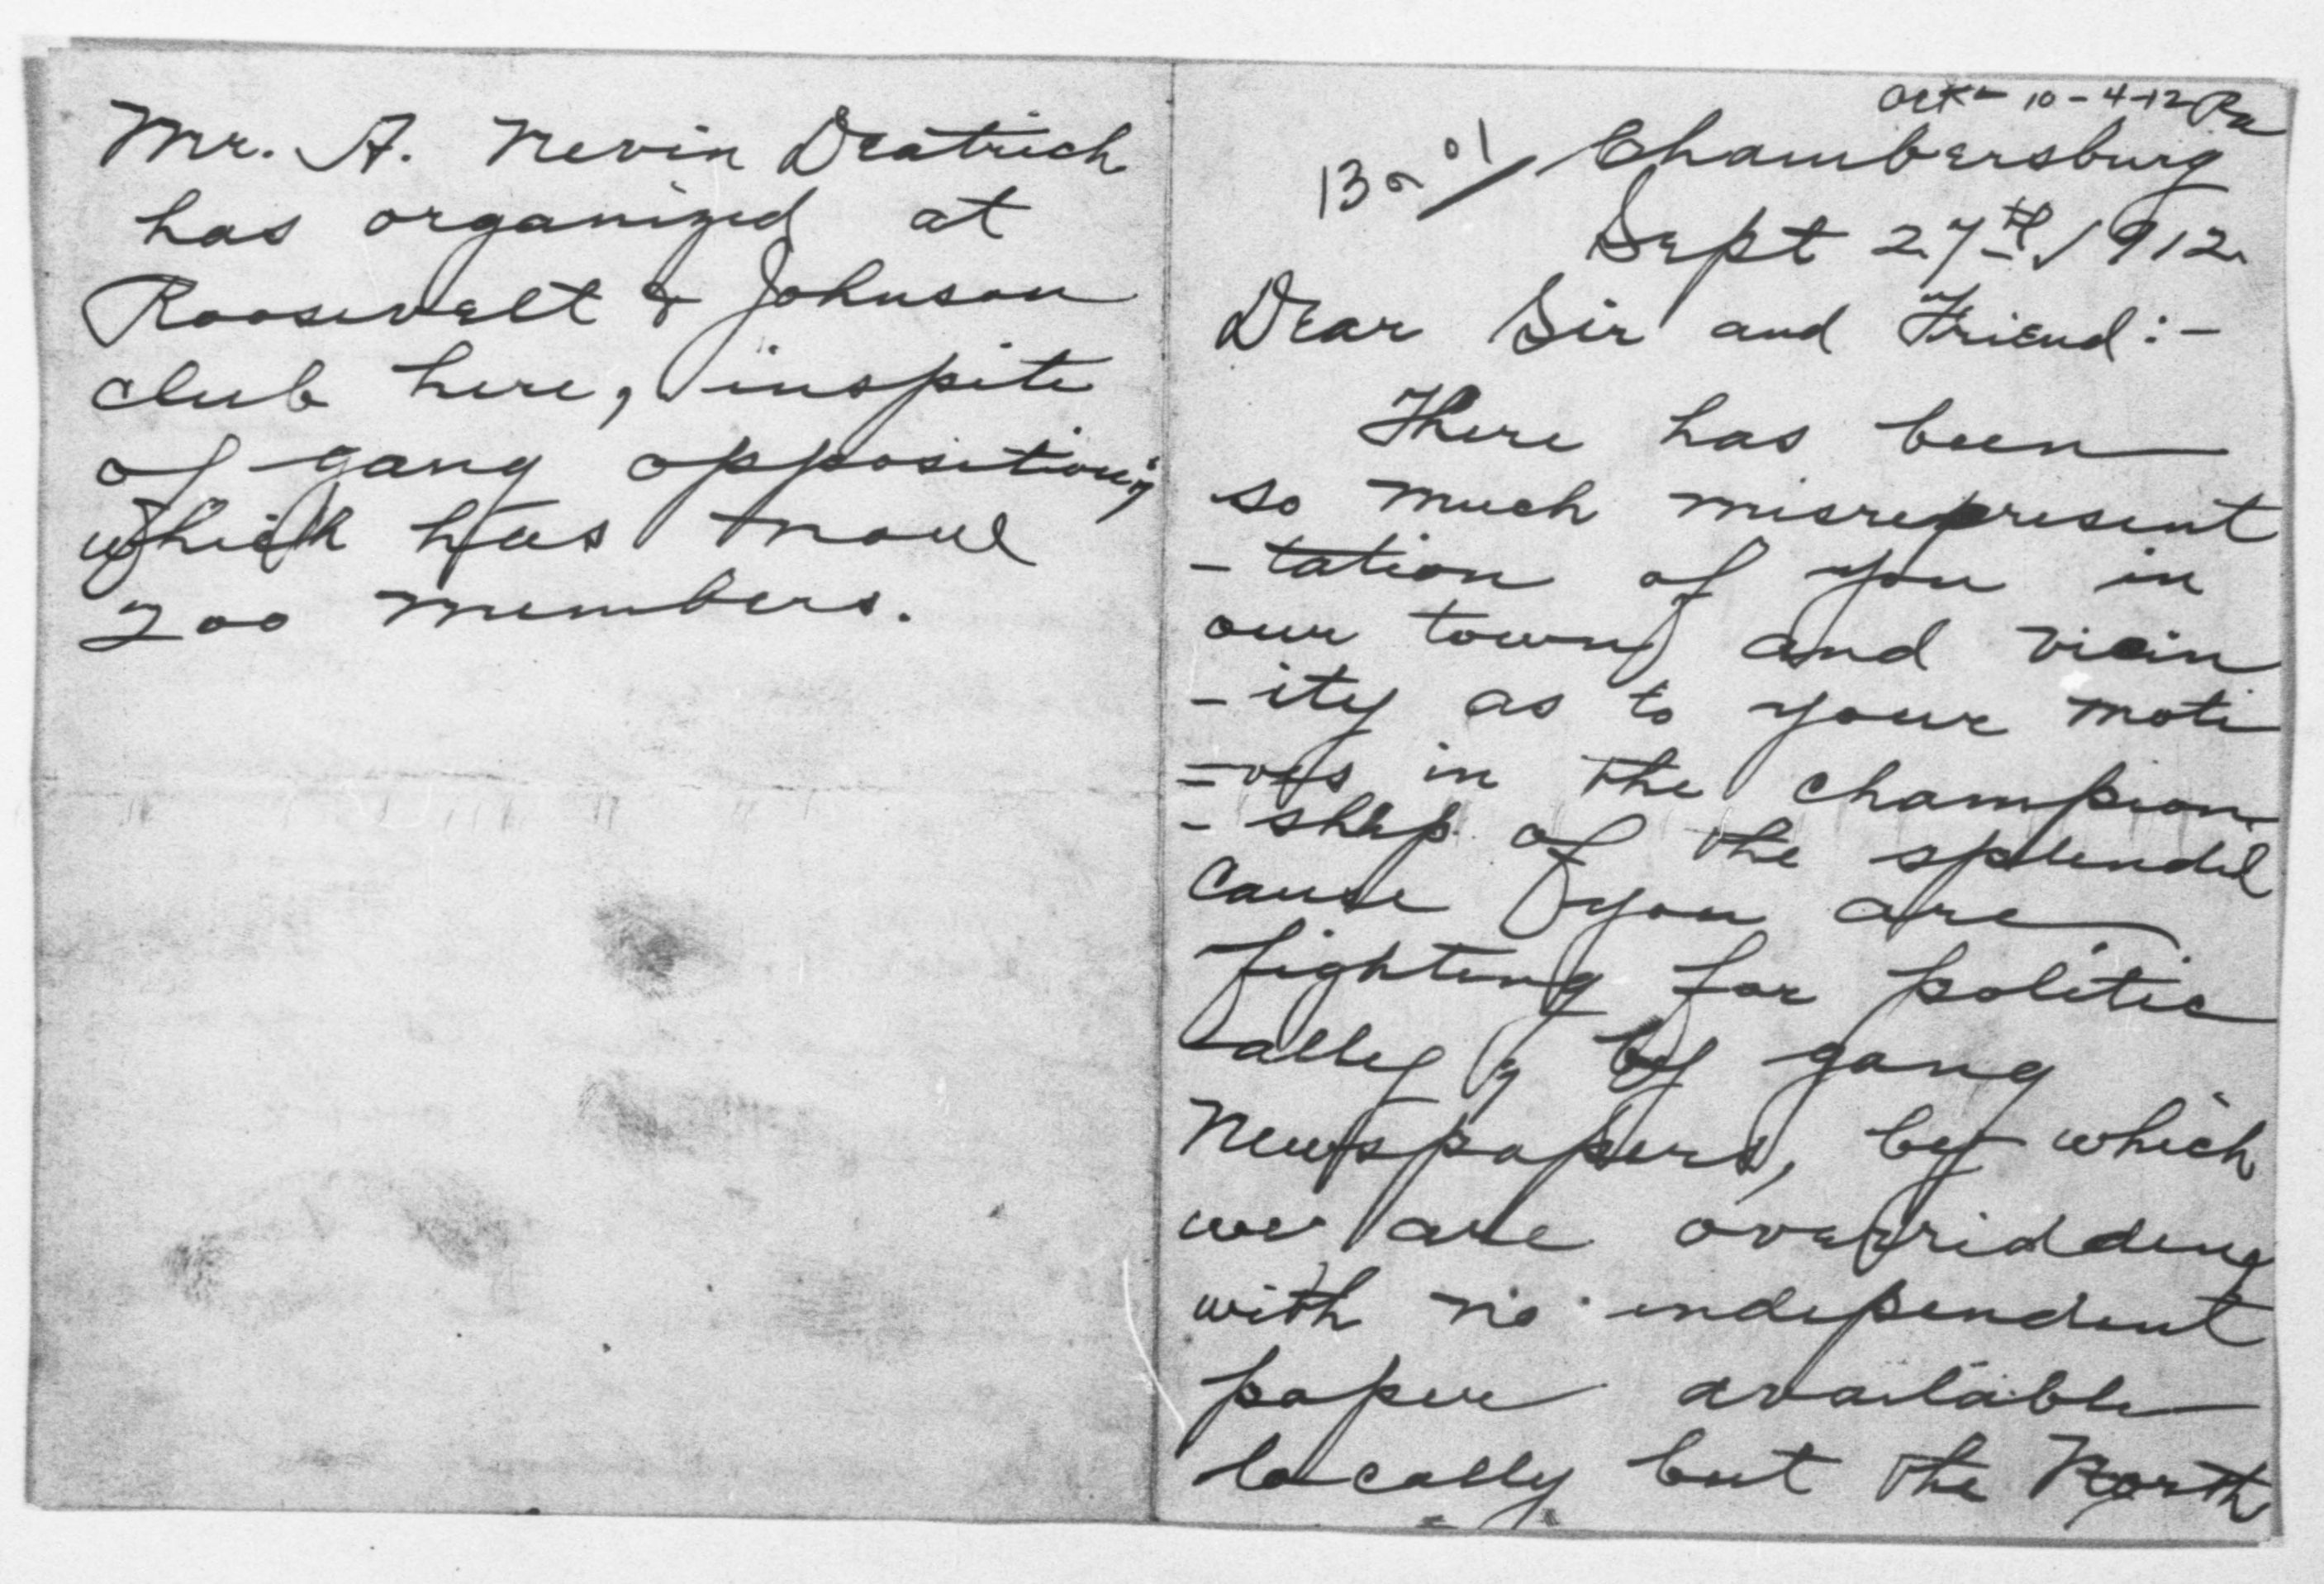 Mr. A. Nevin Deatrich
has organized at
Roosevelt & Johnson
club here, inspite
of gang opposition,
which has now
200 members.
10-4-12 Pa
Chambersburg
Sept 27th, 1912.
Dear Sir and Friend:-
There has been
so much misrepresent
-tation of you in
our town and vicin
-ity as to your moti
=ves in the champion
-ship of the splendid
cause you are
fighting for politic
ally, by gang
Newspapers, by which
we are overridden
with no independent
paper available
locally but the North